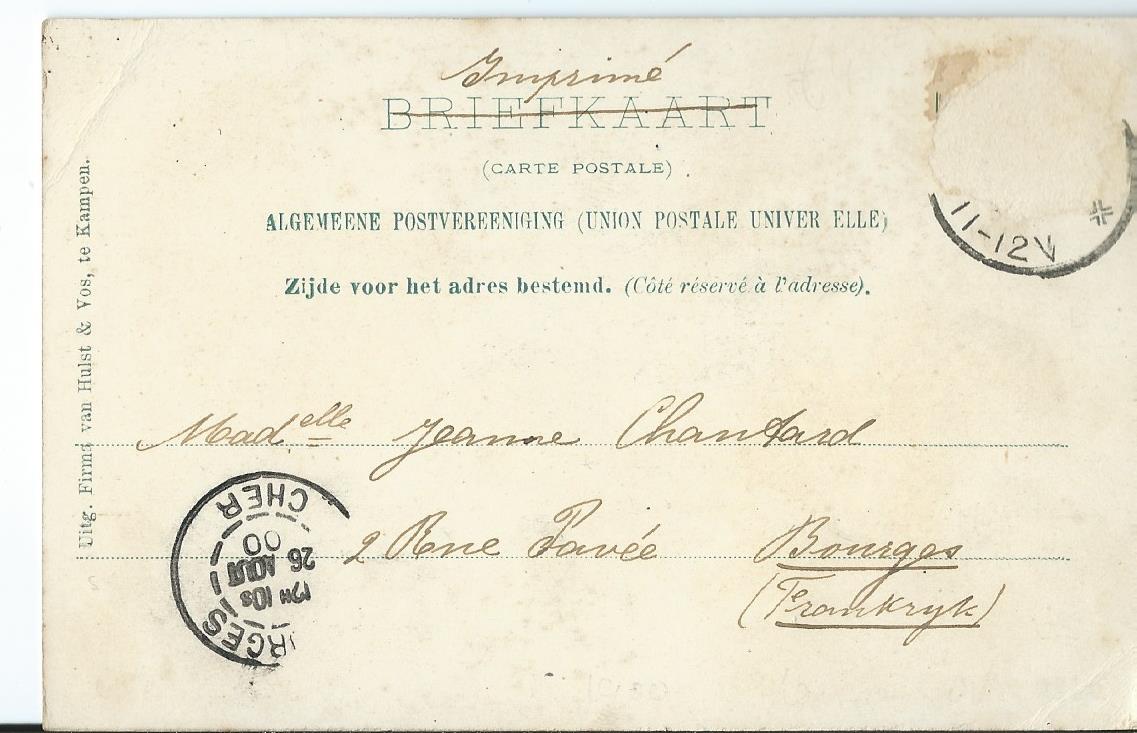 Imprimé
BRIEFKAART
(CARTE POSTALE)
ALGEMEENE POSTVEREENIGING (UNION POSTALE UNIVER ELLE)
Zijde voor het adres bestemd. (Côté réservé à l'adresse).
11-12V
Uitg. Firma van Hulst & Vos, te Kampen.
Madelle Jeanne Chantard
2 Rue Pavée Bourges
(Frankryk)
RGES
CHER
26
AOUT
00